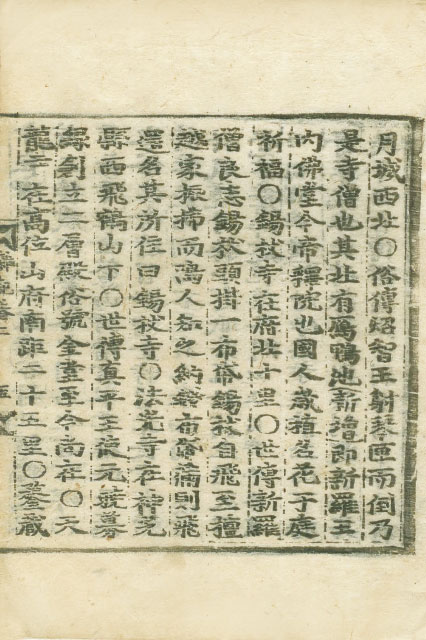 月城西北〇俗傳炤智王射琴匣而倒乃
是寺僧也其北有鴈鴨池新增即新羅王
內佛堂今帝釋院也國人歲植名花于庭
祈福〇錫杖寺在府北十里〇世傳新羅
僧良志錫杖頭掛一布帒錫杖自飛至檀
越家振拂而鳴人知之納齋布帒滿則飛
還名其所住曰錫杖寺〇法光寺在神光
縣西飛鶴山下〇世傳眞平王爲元曉募
緣創立二層殿俗號金堂至今尚在〇天
龍寺在高位山府南距二十五里〇叅藏